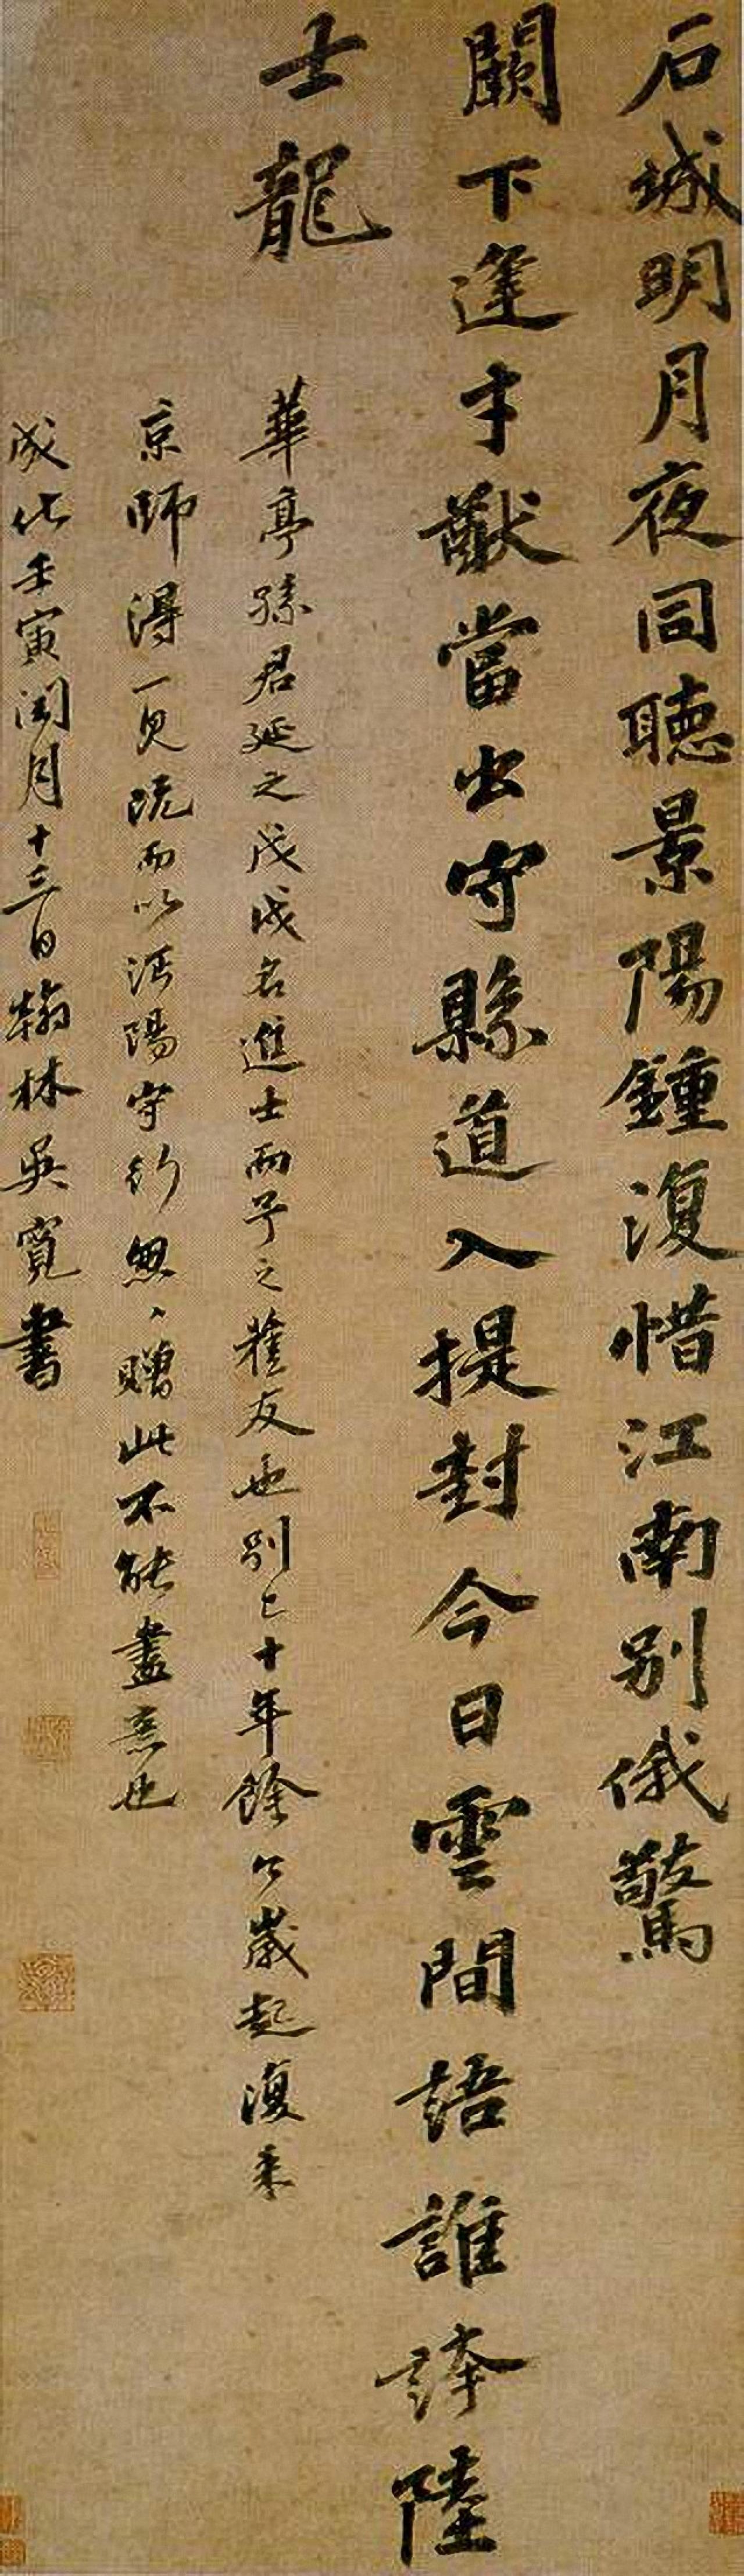 石城明月夜同聽景陽鍾復惜江南別俄驚
闕下逢才猷當出守縣道入提封今日雲間語誰誇陸
士龍
華亭孫君延之戊戌名進士而予之舊友也別已十年餘今歲起復来
京師得一見既而以沔陽守行怱〻贈此不能盡意也
成化壬寅閏月十三日翰林吳寬書